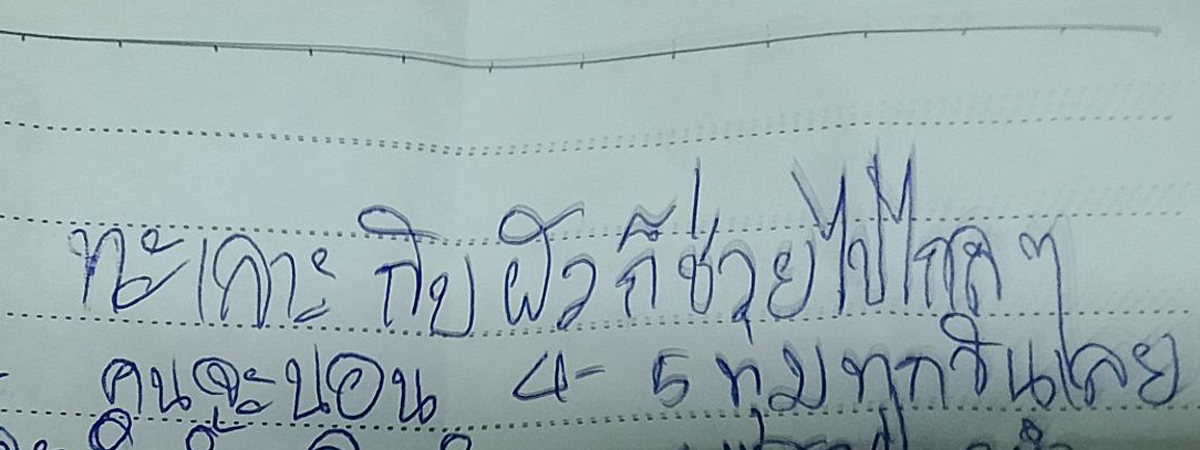 ทะเลาะกับผัวก็ช่วยไปไกลๆ
คนจะนอน 4-5 ทุ่มทุกวันเลย